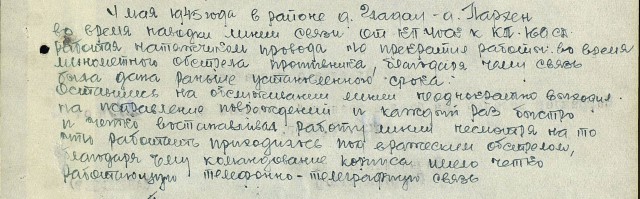 4 мая 1945 года в районе д. - д.
во время наводки линии связи от КП к КП
работая натяжчиком провода не прекратил работы во время
минометного обстрела противника, благодаря чему связь
была дана раньше установленного срока.
Оставшись на обслуживании линии неоднократно выходил
на исправление повреждений и каждый раз быстро
и четко восстанавливал работу линии несмотря на то
что работать приходилось под вражеским обстрелом,
благодаря чему командование корпуса имело четко
работающую телефонно-телеграфную связь